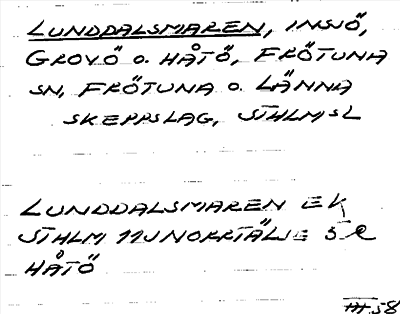 LUNDDALSMAREN, INSJÖ,
GROVÖ O. HÅTÖ, FRÖTUNA
SN, FRÖTUNA O. LÄNNA
SKEPPSLAG, STHLMSL
LUNDDALSMAREN EK
STHLM 11J NORRTÄLJE 5 e
HÅTÖ
III.58